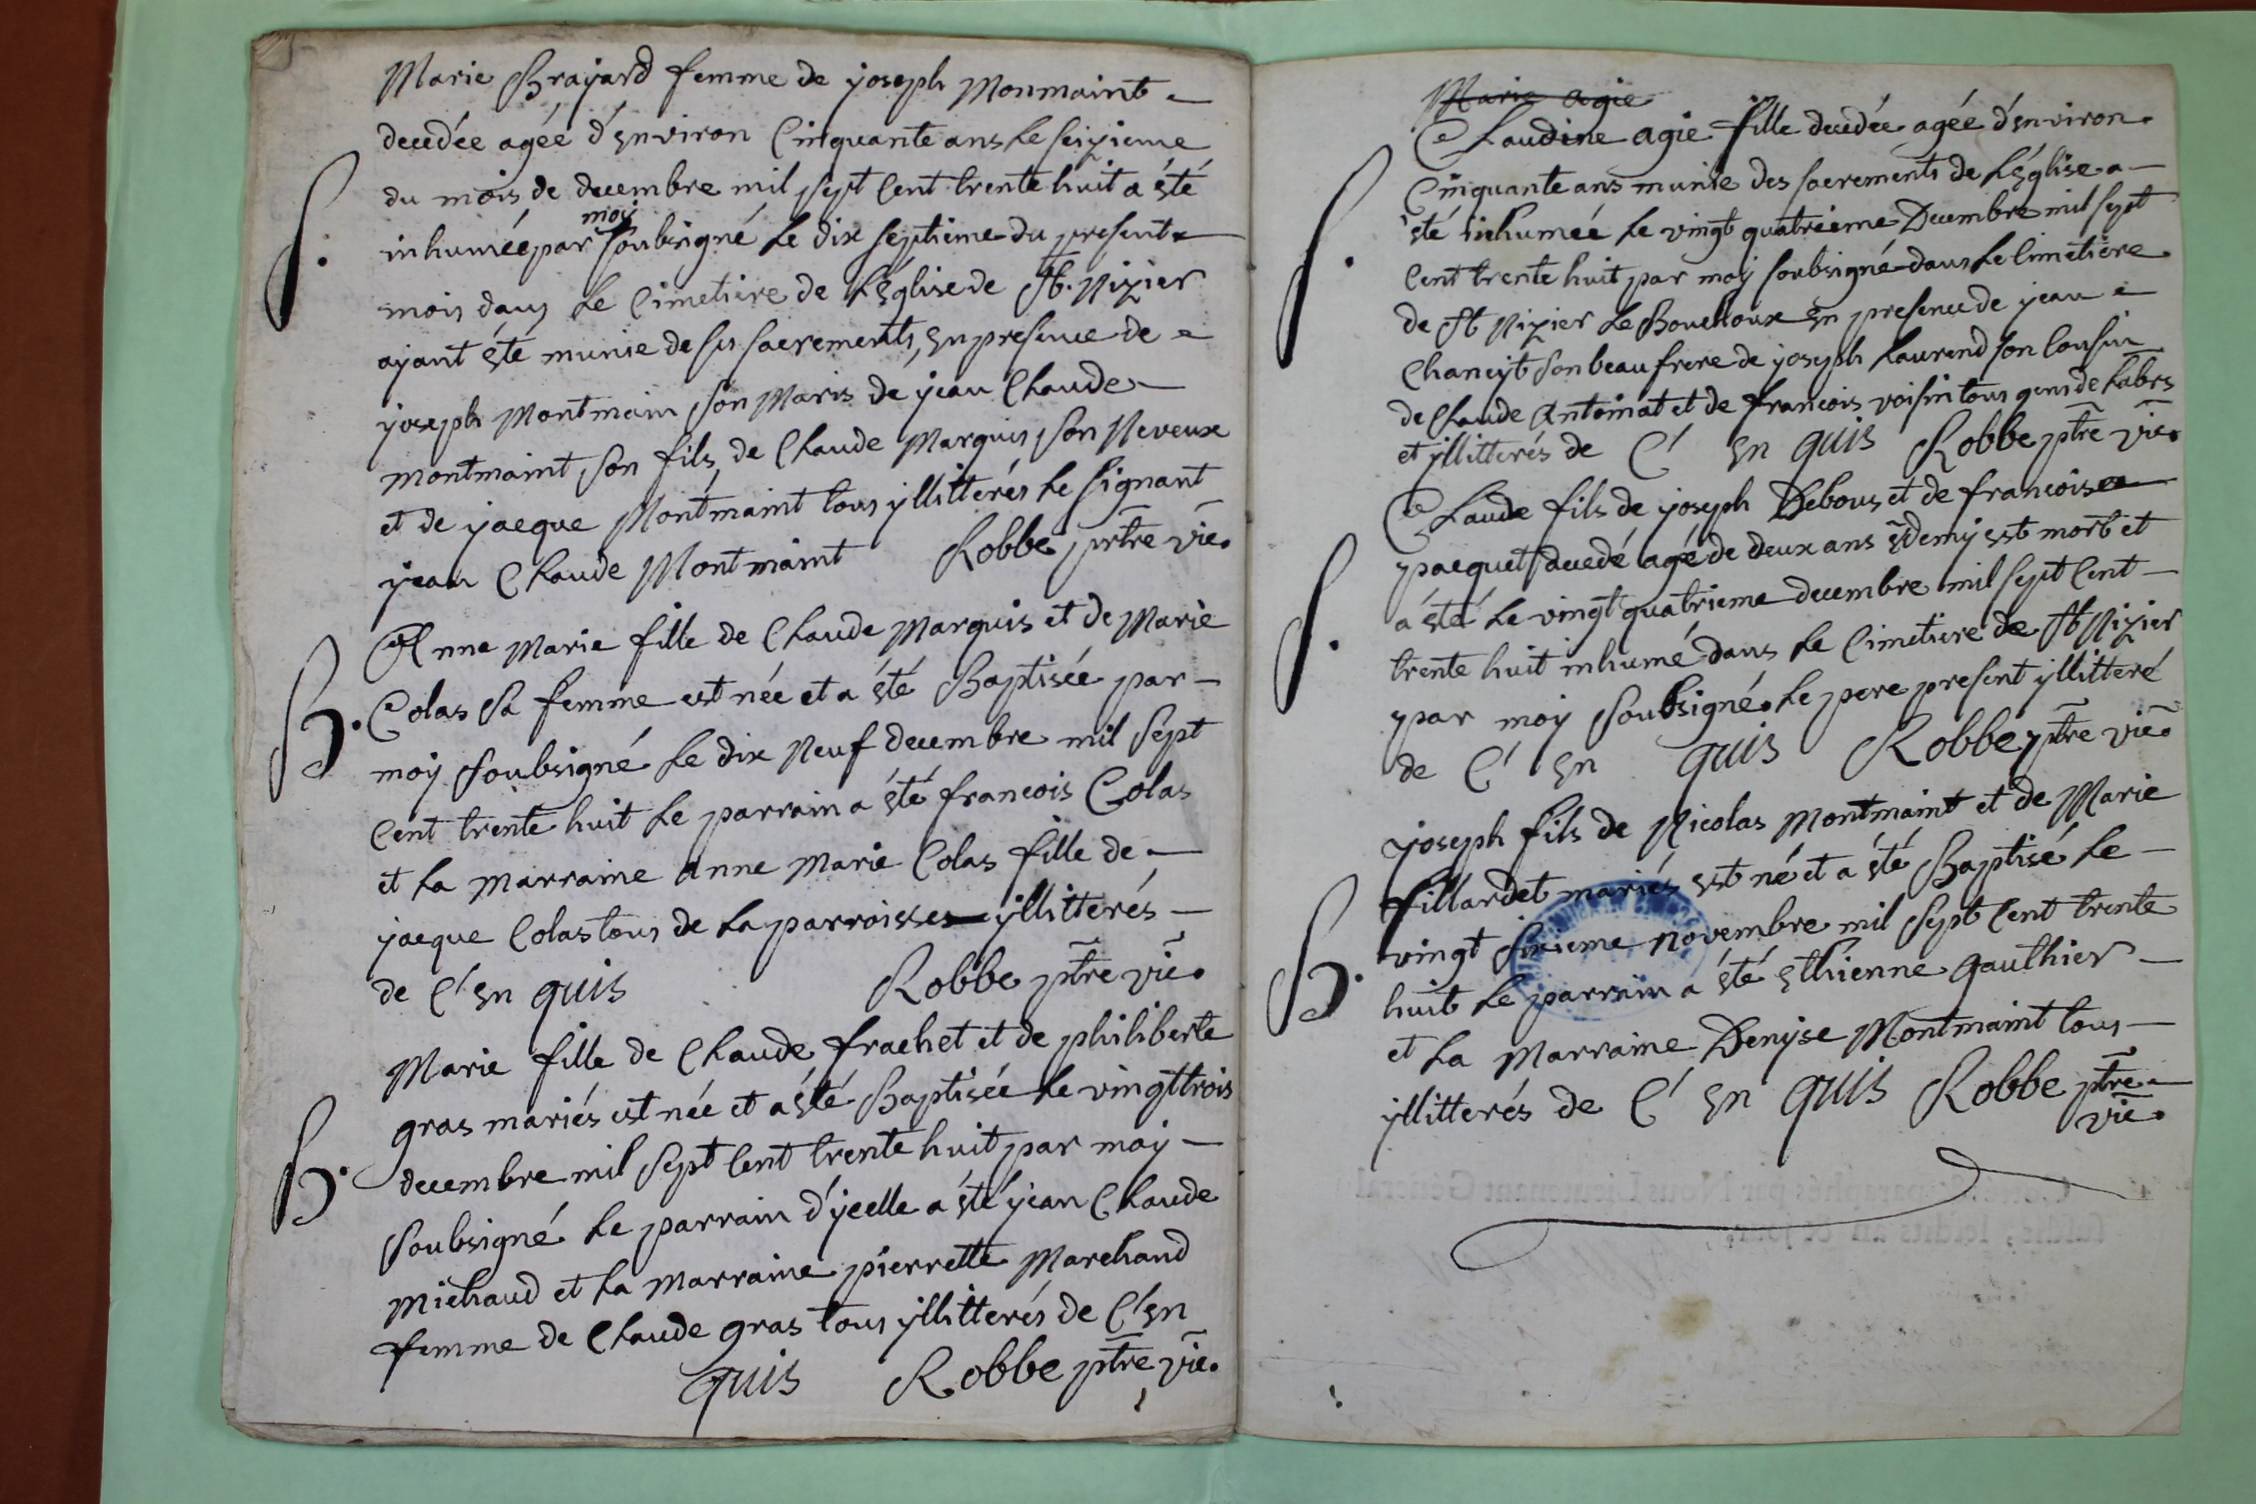 Marie Brayard femme de joseph Monmaint
decedée agée d'Environ Cinquante ans le seizieme
du mois de decembre mil sept Cent trente huit a été
moij
inhumée par soubsigné le dix septieme du present
mois dans le Cimetiere de L'Eglise de St. Nizier
ayant été munie de ses sacrements, En presence de
joseph Montmain son Maris de jean Claude
montmaint son fils, de Claude Marquis son Neveux
et de jacque Montmaint tous yllitterés le signant
jean Claude Montmaint Robbe prtre vic.
S.
Anne Marie fille de Claude Marquis et de Marie
Colas sa femme est née et a été Baptisée par
moij soubsigné le dix Neuf decembre mil sept
Cent trente huit le parrain a été francois Colas
et la marraine anne Marie Colas fille de
jacque Colas tous de la parroisse yllitterés
de C' En quis Robbe ptre vic.
B.
Marie fille de Claude frachet et de philiberte
gras mariés est née et a été Baptisée le vingt trois
decembre mil sept Cent trente huit par moij
soubsigné le parrain d'ycelle a été jean Claude
Michaud et la Marraine pierrette Marchand
femme de Claude gras tous yllitterés de C' En
quis Robbe ptre vic.
B.
Marie agie
Claudine agie fille decedée agée d'Environ
Cinquante ans munie des sacrements de L'Eglise a
été inhumée le vingt quatrieme Decembre mil sept
Cent trente huit par moij soubsigné dans le Cimetiere
de St Nizier le Bouchoux En presence de jean
Chaneyt son beau frere de joseph Laurend son Cousin
de Claude Antoinat et de francois voisin tous gens de Labrs
et yllitterés de C' En quis Robbe ptre vic.
S.
Claude fils de joseph Debous et de francoise
pacquet decedé agé de deux ans Et demy est mort et
a été le vingt quatrieme decembre mil sept Cent
trente huit inhumé dans le Cimetiere de St Nizier
par moy soubsigné. le pere present yllitteré
de C' En quis Robbe ptre vic.
S.
joseph fils de Nicolas Montmaint et de Marie
fillardet mariés est né et a été Baptisé le
vingt sixieme novembre mil sept Cent trente
huit le parrain a été Ethienne gauthier
et la Marraine Denyse Montmaint tous
yllitterés de C' En quis Robbe ptre
vic.
B.